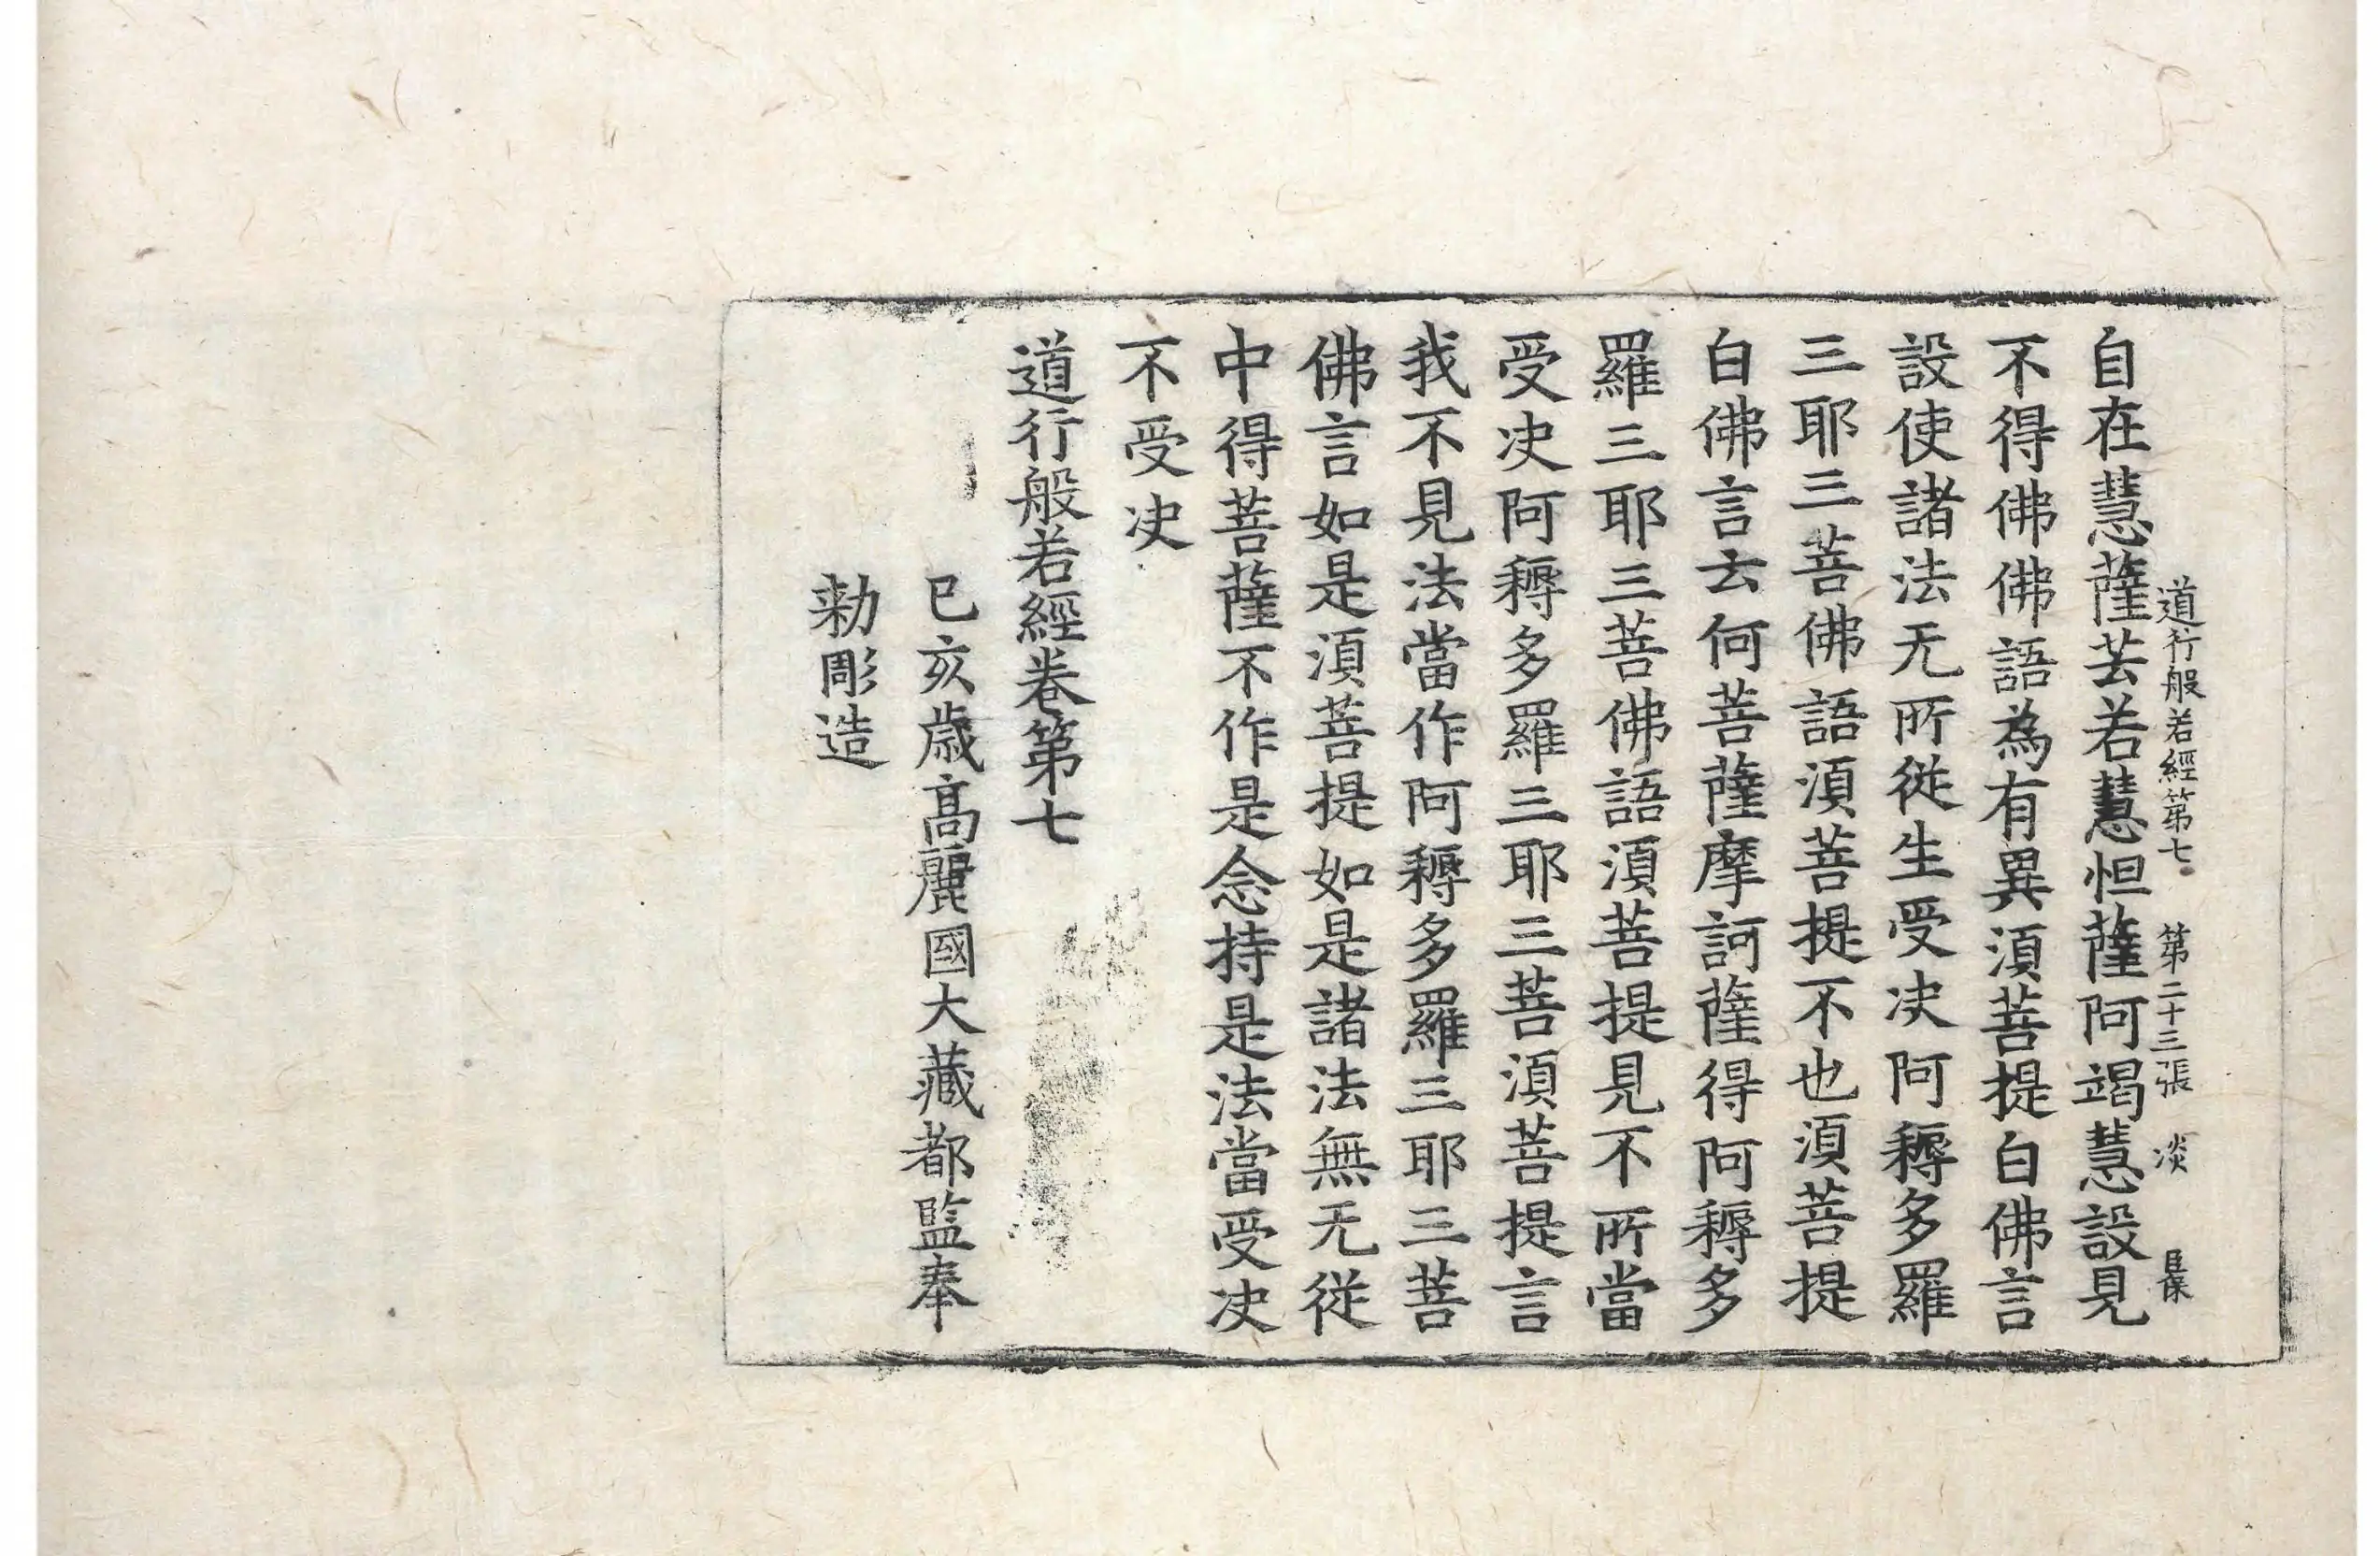 道行般若經第七 第二十三張 淡
自在慧薩芸若慧怛薩阿竭慧設見
不得佛佛語為有異湏菩提白佛言
設使諸法无所從生受决阿耨多羅
三耶三菩佛語湏菩提不也湏菩提
白佛言云何菩薩摩訶薩得阿耨多
羅三耶三菩佛語湏菩提見不所當
受决阿耨多羅三耶三菩湏菩提言
我不見法當作阿耨多羅三耶三菩
佛言如是湏菩提如是諸法無无從
中得菩薩不作是念持是法當受决
不受决
道行般若經卷第七
已亥歲高麗國大藏都監奉
勑彫造